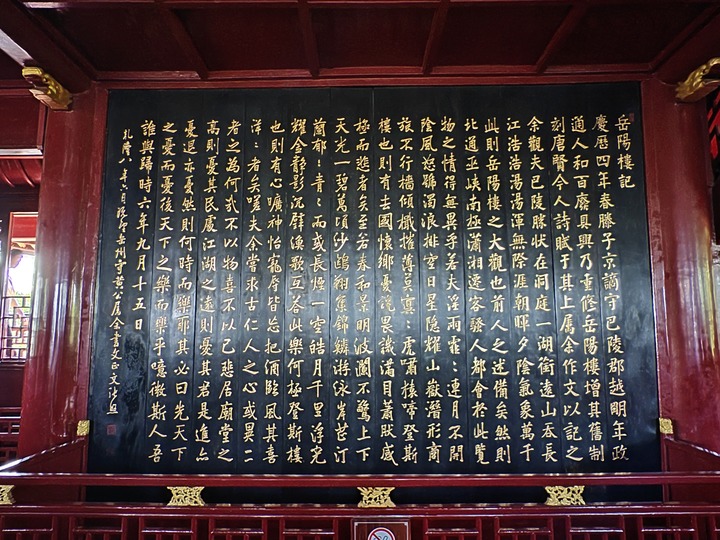 岳陽樓記
慶曆四年春滕子京謫守巴陵郡越明年政
通人和百廢具興乃重修岳陽樓增其舊制
刻唐賢今人詩賦于其上屬余作文以記之
余觀夫巴陵勝狀在洞庭一湖銜遠山吞長
江浩浩湯湯渾無際涯朝暉夕陰氣象萬千
此則岳陽樓之大觀也前人之述備矣然則
北通巫峽南極瀟湘遷客騷人都會於此覽
物之情得無異乎若夫淫雨霏〻連月不開
陰風怒號濁浪排空日星隱耀山嶽潛形商
旅不行檣傾檝摧薄暮冥〻虎嘯猿啼登斯
樓也則有去國懷鄉憂讒畏譏滿目蕭然感
極而悲者矣至若春和景明波瀾不驚上下
天光一碧萬頃沙鷗翔集錦鱗游泳岸芷汀
蘭郁〻青〻而或長煙一空皓月千里浮光
耀金靜影沉璧漁歌互答此樂何極登斯樓
也則有心曠神怡寵辱皆忘把酒臨風其喜
洋〻者矣嗟夫余嘗求古仁人之心或異二
者之為何哉不以物喜不以己悲居廟堂之
高則憂其民處江湖之遠則憂其君是進亦
憂退亦憂然則何時而樂耶其必曰先天下
之憂而憂後天下之樂而樂乎噫微斯人吾
誰與歸時六年九月十五日
乾隆八年六月
岳州守黃公屬余書文正